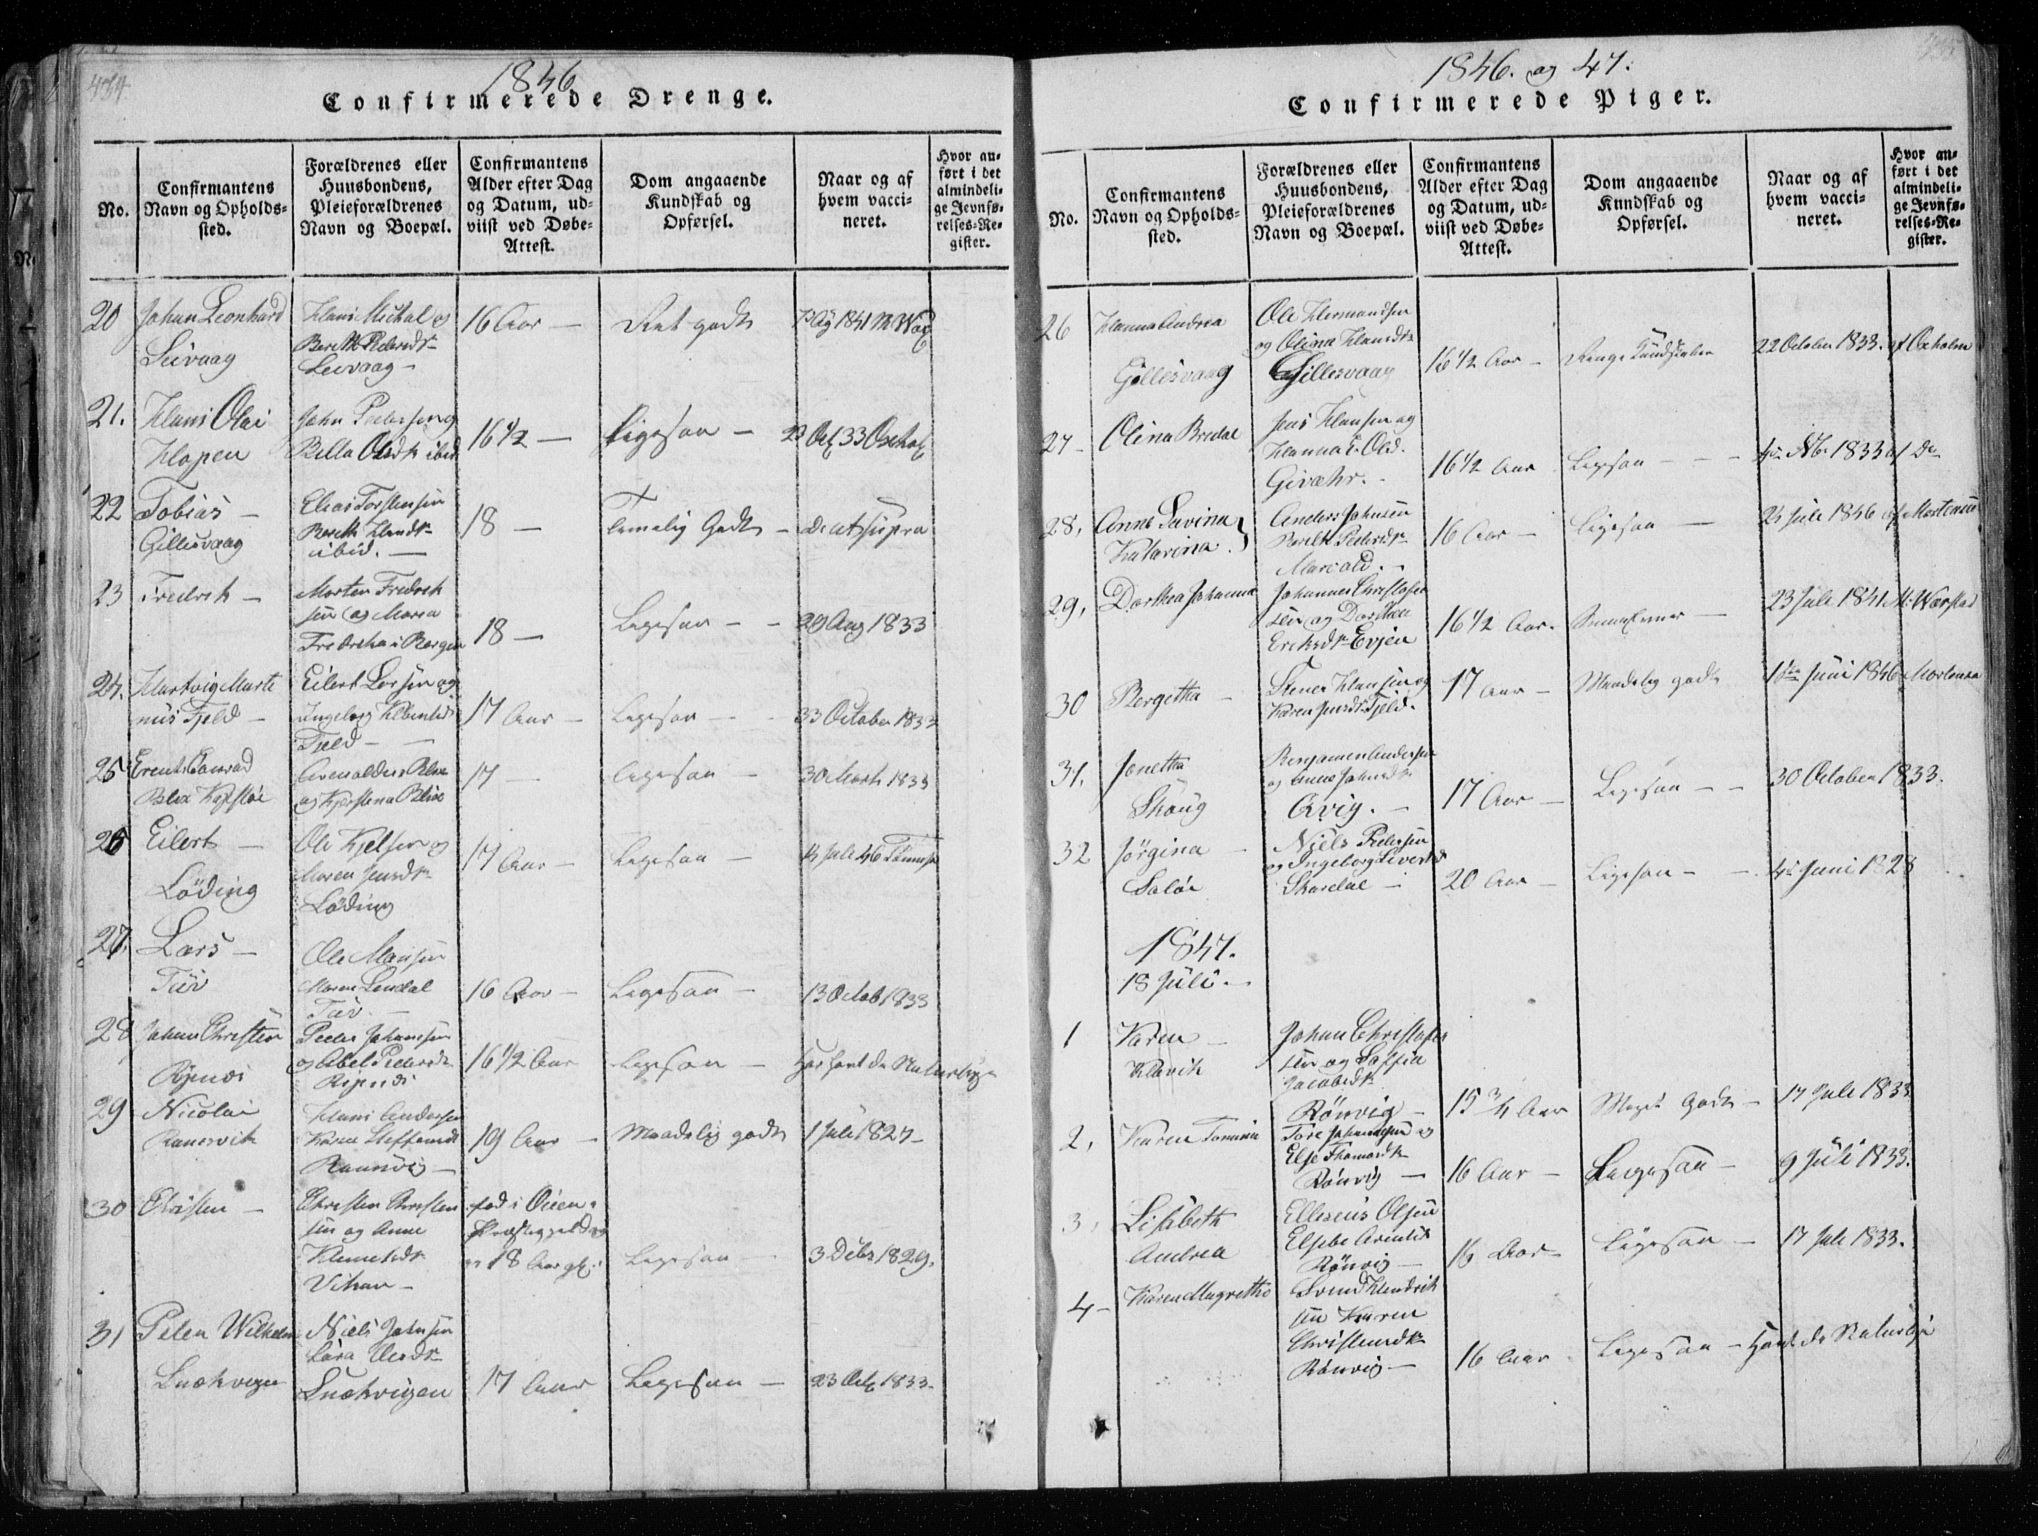 434
1846
Confirmerede Drenge.
No.
Confirmantens
Navn og Opholds-
sted.
Forældrenes eller
Huusbondens,
Pleieforældrenes
Navn og Boepæl.
Confirmantens
Alder efter Dag
og Datum, ud-
viist ved Døbe-
Attest.
Dom angaaende
Kundskab og
Opførsel.
Naar og af
hvem vacci-
neret.
Hvor an-
ført i det
almindeli-
ge Jevnfø-
relses-Re-
gister.
20
Johan Leonhard
Seivaag
Hans Michal og
Berith Pedersdr
Seivaag -
16 Aar -
Ret godt
21.
Hans Olai
Klopen
John Pedersen og
Bella Olsdr ibid
16 1/2 -
Ligesaa -
22
Tobias -
Gillesvaag
Elias Torstensen
Berith Hansdr
ibid. -
18 -
Temelig Godt -
De ut supra
23
Fredrek -
Morten Fredrek
sen og Maren
Fredreka i Bergen
18 -
Ligesaa - -
29 Aug 1833
24.
Hartvig Marti
nus Fjeld -
Eilert Larsen og
Ingeborg
Fjeld -
17 Aar -
Ligesaa - -
October 1833
25
Erents Conrad
Blix
og Kjerstena Blix
17 -
Ligesaa -
30 Marts 1833
26
Eilert -
Löding
Ole Kjelsen og
Maren Jensdr
Löding
17 Aar -
Ligesaa -
14 Juli 46
27.
Lars -
Tuv
Ole Monsen
Maren Lendal
Tuv -
16 Aar -
Ligesaa -
13 Octob 1833
28
Johan Christen
Peder Johansen
og Abel Pedersdr
16 1/2 Aar
Ligesaa -
Har havt de Naturlige
29
Nicolai
Ranesvik
Hans Andersen
Karen Steffensdr
19 Aar -
Maadelig godt
1 Juli 1827 -
30
Christen -
Christen Christen
sen og Anne
Klemetsdr
fød i
Præstegjeld
18 Aar gl.
Ligesaa -
3 Debr 1829.
31
Peder Wilhelm
Niels Johnsen
Lara Olsdr
17 Aar
Ligesaa -
23 Oct 1833.
1846. og 47.
Confirmerede Piger.
No.
Confirmantens
Navn og Opholds-
sted.
Forældrenes eller
Huusbondens,
Pleieforældrenes
Navn og Boepæl.
Confirmantens
Alder efter Dag
og Datum, ud-
viist ved Døbe-
Attest.
Dom angaaende
Kundskab og
Opførsel.
Naar og af
hvem vacci-
neret.
Hvor an-
ført i det
almindeli-
ge Jevnfø-
relses-Re-
gister.
26
Hanna Andrea
Gillesvaag
Ole Hermandsen
og Olina Hansdr
Gillesvaag
16 1/2 Aar -
Ringe Kundskaber
22 October 1833. af Oxholm
27
Olina Bredal
Jens Hansen og
Hanna Olsd.
Givær. -
16 1/2 Aar
Ligesaa - - -
1833 af Do
28,
Anne Serina
Katarina
Anders Johnsen
Berith Pedersdr
16 Aar -
Ligesaa -
24 Juli 1846 af Mortensen
29,
Dorthea Johanna
Johannes Christofer
sen og Dorthea
Ericksdr Evjen
16 1/2 Aar.
23 Juli 1841
30
Bergetha -
Stener Hansen og
Karen Jensdr Fjeld.
17 Aar -
Maadelig godt
Juni 1846 Mortensen
31.
Jonetha
Skaug
Benjamen Andersen
Arvig. -
17 Aar -
Ligesaa - -
30 October 1833.
32
Jörgina -
Saløe
Niels Pedersen
og Ingeborg Sivertsd
20 Aar -
Ligesaa - -
4de Juni 1828
1847.
18 Juli. -
1
Karen -
Kløvik
Johan Christofer
sen og Saffia
Jacobsdr
Rönvig -
15 3/4 Aar
Meget Godt -
17 Juli 1833
2,
Karen Tomina
Tore Johannesen og
Else Thomasdr
Rönvig -
16 Aar -
Ligesaa -
9 Juli 1833.
3,
Lisabeth
Andrea
Elleseus Olsen
Elsebe Arentsdr
Rönvig -
16 Aar -
Ligesaa -
17 Juli 1833.
4 -
Karen Magrethe
Svend Hendrik
sen Karen
Christensdr
Rönvig -
16 Aar
Ligesaa -
Havt de Naturlige